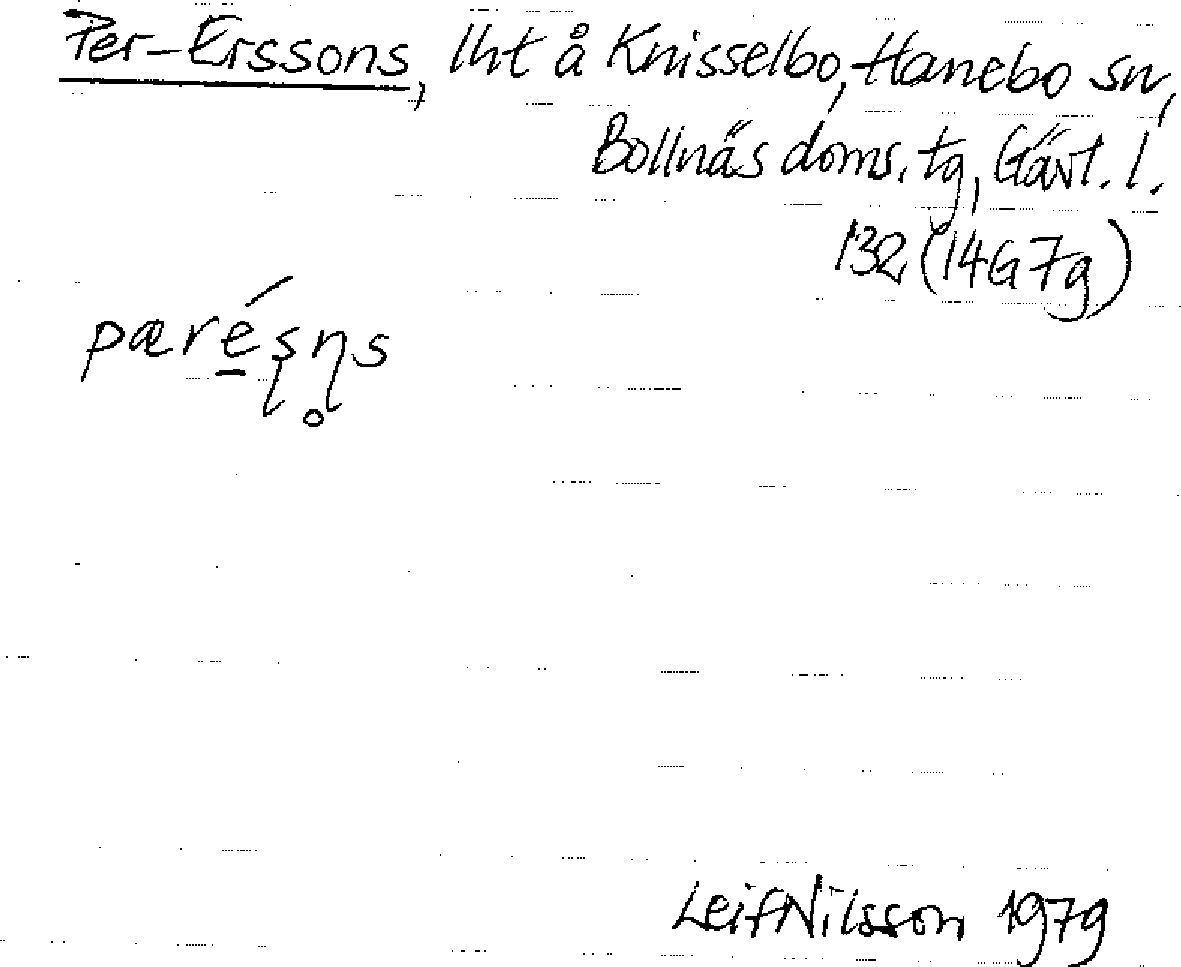 Per-Erssons, lht å Knisselbo, Hanebo sn,
Bollnäs doms. tg, Gävl. l.
132 (14G7g)
pærés̨ņ̊s
Leif Nilsson 1979